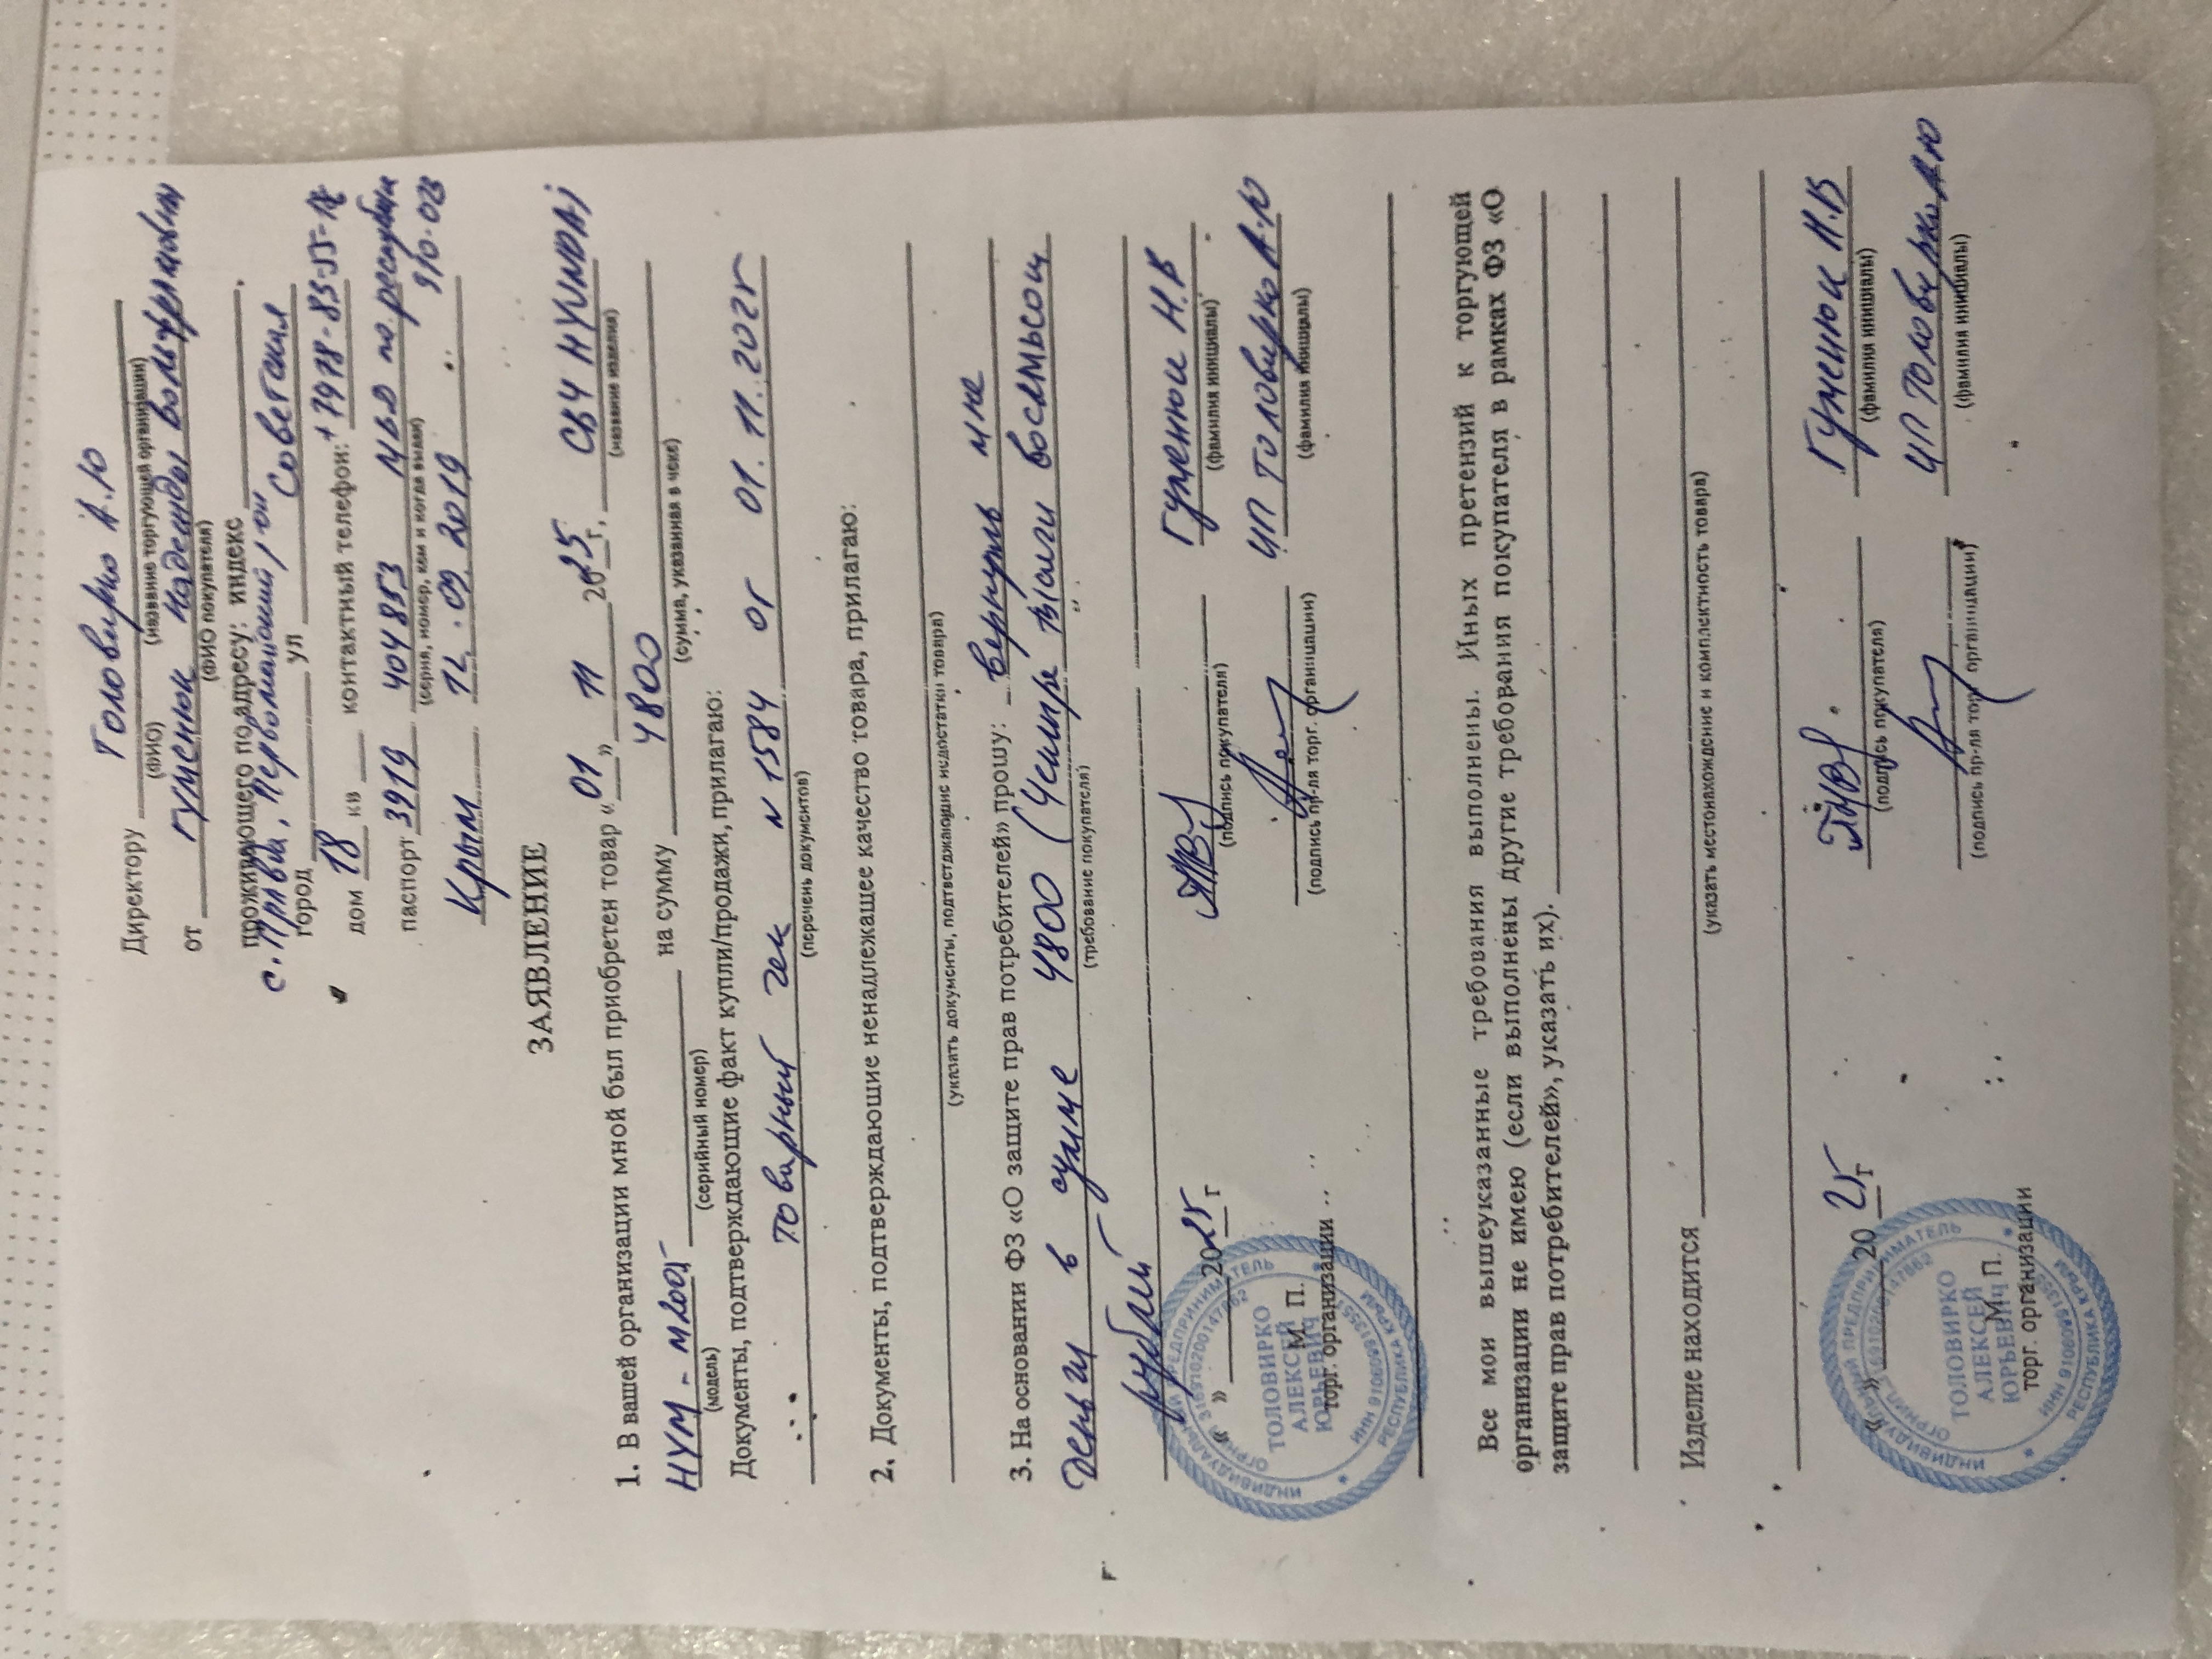 Директору Толовирко А.Ю
(ФИО) (название торгующей организации)
от Гуменюк Надежды
(ФИО покупателя)
проживающего по адресу: индекс
с. Правда, Первомайский р-он
город ул Советская
дом 18 кв контактный телефон: +7978-855-
паспорт 3919 404853 МВД по республике
(серия, номер, кем и когда выдан)
Крым 12.09.2019 910-023
ЗАЯВЛЕНИЕ
1. В вашей организации мной был приобретен товар «01» 11 2025 г. СВЧ HYUNDAI
(название изделия)
HYM-M2005 на сумму 4800
(модель) (серийный номер) (сумма, указанная в чеке)
Документы, подтверждающие факт купли/продажи, прилагаю:
товарный чек N 1584 от 01.11.2025
(перечень документов)
2. Документы, подтверждающие ненадлежащее качество товара, прилагаю:
(указать документы, подтверждающие недостатки товара)
3. На основании ФЗ «О защите прав потребителей» прошу: вернуть мне
деньги в суме 4800 (Четыре тысячи восемьсот
(требование покупателя)
рублей
« » 2025 г Гуменюк Н.В
(подпись покупателя) (фамилия инициалы)
М П. ИП Толовирко А.Ю
торг. организации (подпись пр-ля торг. организации) (фамилия инициалы)
ИНДИВИДУАЛЬНЫЙ ПРЕДПРИНИМАТЕЛЬ
ТОЛОВИРКО
АЛЕКСЕЙ
ЮРЬЕВИЧ
РЕСПУБЛИКА КРЫМ
Все мои вышеуказанные требования выполнены. Иных претензий к торгующей
организации не имею (если выполнены другие требования покупателя в рамках ФЗ «О
защите прав потребителей», указать их).
Изделие находится
(указать местонахождение и комплектность товара)
« » 20 25 г Гуменюк Н.В
(подпись покупателя) (фамилия инициалы)
М П. ИП Толовирко А.Ю
торг. организации (подпись пр-ля торг. организации) (фамилия инициалы)
ИНДИВИДУАЛЬНЫЙ ПРЕДПРИНИМАТЕЛЬ
ТОЛОВИРКО
АЛЕКСЕЙ
ЮРЬЕВИЧ
РЕСПУБЛИКА КРЫМ